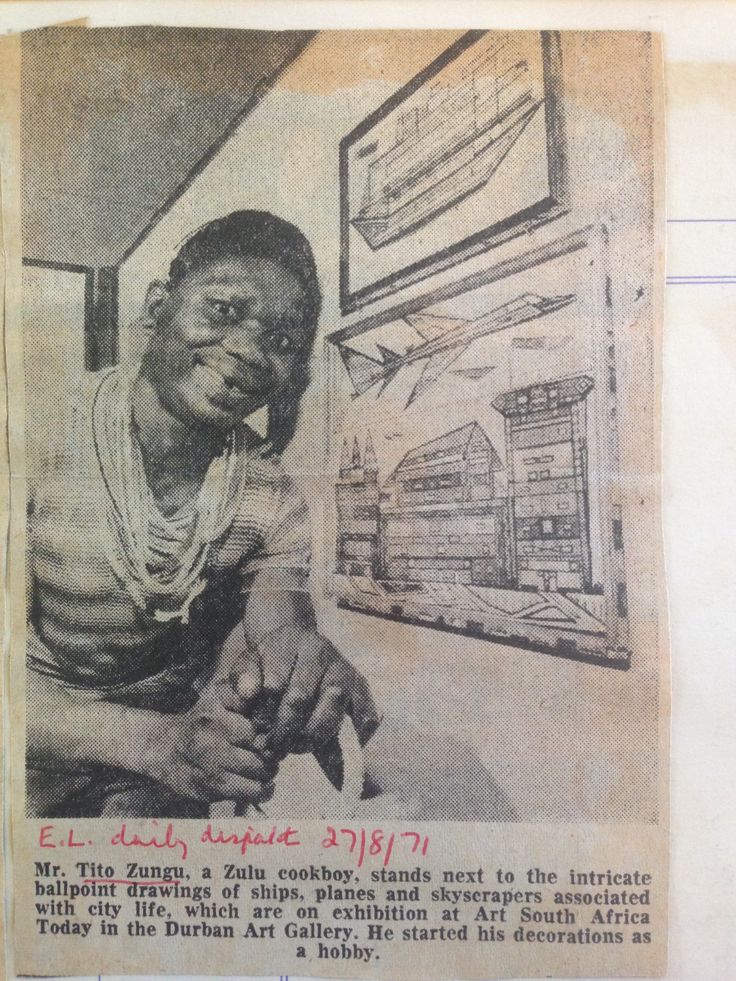 E.L. daily dispatch 27/8/71
Mr. Tito Zungu, a Zulu cookboy, stands next to the intricate
ballpoint drawings of ships, planes and skyscrapers associated
with city life, which are on exhibition at Art South Africa
Today in the Durban Art Gallery. He started his decorations as
a hobby.